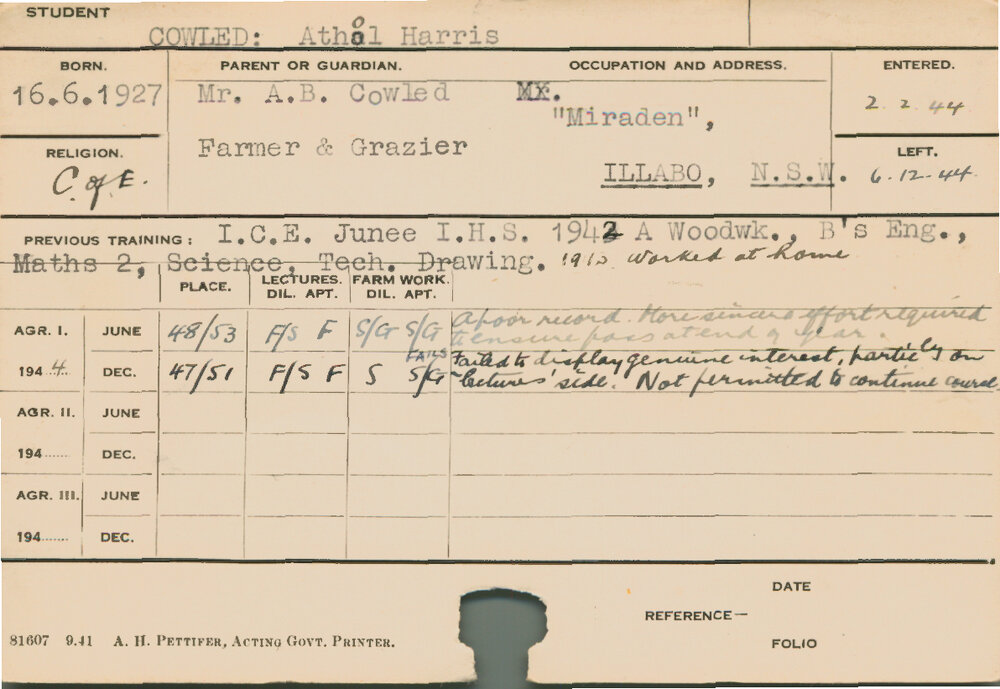 STUDENT
COWLED: Athol Harris
BORN. PARENT OR GUARDIAN. OCCUPATION AND ADDRESS. ENTERED.
16.6.1927 Mr. A.B. Cowled Mr. 2.2.44
"Miraden",
RELIGION. Farmer & Grazier LEFT.
C. of E. ILLABO, N.S.W. 6.12.44
PREVIOUS TRAINING: I.C.E. Junee I.H.S. 1942 A Woodwk., B's Eng.,
Maths 2, Science, Tech. Drawing. worked at home
PLACE. LECTURES. DIL. APT. FARM WORK. DIL. APT.
AGR. I. JUNE 48/53 F/S F S/G S/G A poor record. More sincere effort required
to ensure pass at end of year.
FAILS Failed to display genuine interest, partic'ly on
194 4 DEC. 47/51 F/S F S S/G lectures' side. Not permitted to continue course
AGR. II. JUNE
194...... DEC.
AGR. III. JUNE
194...... DEC.
DATE
REFERENCE—
81607 9.41 A. H. PETTIFER, ACTING GOVT. PRINTER. FOLIO